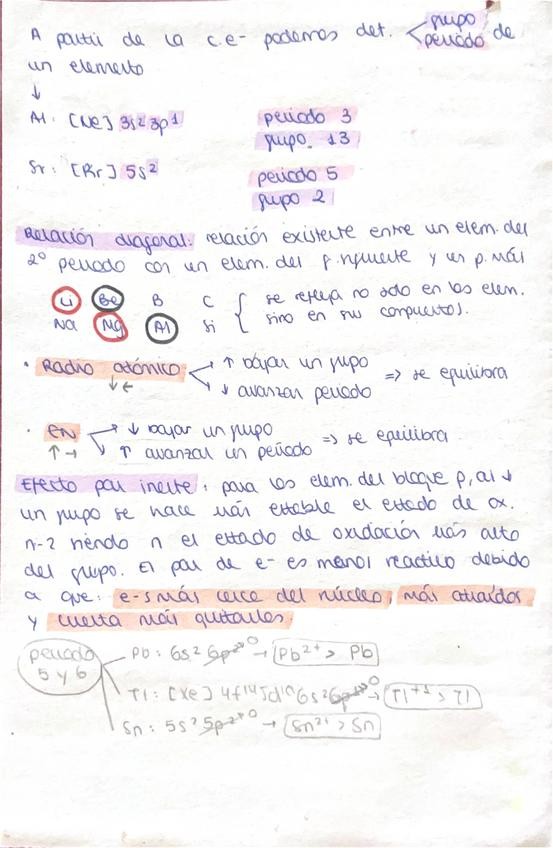 A partir de la c.e- podemos det. < grupo
periodo de
un elemento
↓
Al: [Ne] 3s² 3p¹ periodo 3
grupo. 13
Sr: [Kr] 5s² periodo 5
grupo 2
Relación diagonal: relación existente entre un elem. del
2º periodo con un elem. del p. siguiente y un p. más
Li Be B C { se refleja no solo en los elem.
Na Mg Al Si sino en sus compuestos.
· Radio atómico ↑ bajar un grupo
↓← ↓ avanzar periodo => se equilibra
· EN ↓ bajar un grupo
↑→ ↑ avanzar un periodo => se equilibra
Efecto par inerte: para los elem. del bloque p, al ↓
un grupo se hace más estable el estado de ox.
n-2 siendo n el estado de oxidación más alto
del grupo. El par de e- es menos reactivo debido
a que: e-s más cerca del núcleo, más atraídos
y cuesta más quitarlos.
periodo
5 y 6
Pb: 6s² 6p²→⁰ → Pb²⁺ > Pb
Tl: [Xe] 4f¹⁴ 5d¹⁰ 6s² 6p→⁰ → Tl⁺¹ > Tl
Sn: 5s² 5p²→⁰ → Sn²⁺ > Sn